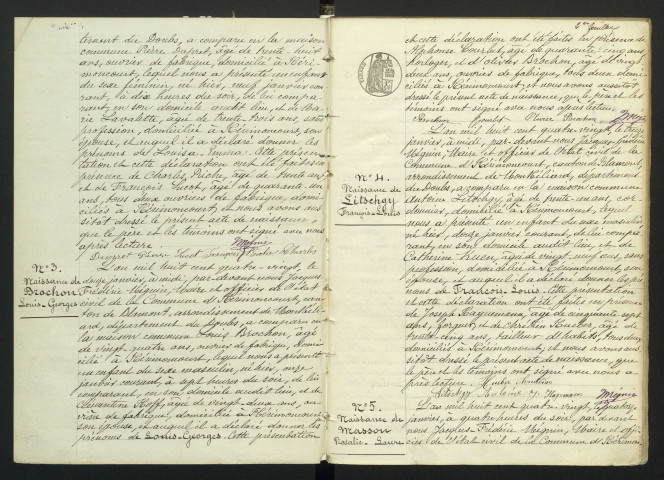 tement du Doubs, a comparu en la maison
commune Pierre Dupret, âgé de trente-huit
ans, ouvrier de fabrique, domicilié à Héri-
moncourt, lequel nous a présenté un enfant
du sexe féminin, né hier, neuf janvier cou-
rant, à dix heures du soir, de lui compa-
rant, en son domicile audit lieu, et de Ma-
rie Lavalette, âgée de trente-trois ans, sans
profession, domiciliée à Hérimoncourt, son
épouse, et auquel il a déclaré donner les
prénoms de Louisa-Emma. Cette présen-
tation et cette déclaration ont été faites en
présence de Charles Piche, âgé de trente ans
et de François Lucot, âgé de quarante-un
ans, tous deux ouvriers de fabrique, domi-
ciliés à Hérimoncourt, et nous avons aus-
sitôt dressé le présent acte de naissance,
que le père et les témoins ont signé avec nous
après lecture.
Dupret Pierre Lucot François Charles
N° 3.
Naissance de
Brochon
Louis-Georges
L'an mil huit cent quatre-vingt, le
douze janvier, à midi, par-devant nous Jacques
Frédéric Méquin, Maire et officier de l'état
civil de la Commune d'Hérimoncourt, can-
ton de Blamont, arrondissement de Montbéli-
ard, département du Doubs, a comparu en
la maison commune Louis Brochon, âgé
de vingt-quatre ans, ouvrier de fabrique, domi-
cilié à Hérimoncourt, lequel nous a présenté
un enfant du sexe masculin, né hier, onze
janvier courant, à sept heures du soir, de lui
comparant, en son domicile audit lieu, et de
ans, ou-
vrière de fabrique, domiciliée à Hérimoncourt,
son épouse, et auquel il a déclaré donner les
prénoms de Louis-Georges. Cette présentation
et cette déclaration ont été faites en présence de
Alphonse Courbet, âgé de quarante-cinq ans,
horloger, et d'Olivier Brochon, âgé de vingt-
deux ans, ouvrier de fabrique, tous deux domi-
ciliés à Hérimoncourt, et nous avons aussitôt
dressé le présent acte de naissance, que le père et les
témoins ont signé avec nous après lecture.
Brochon
N° 4.
Naissance de
Litschgy
François-Louis
L'an mil huit cent quatre-vingt, le treize
janvier, à midi, par-devant nous Jacques-Frédéric
Méquin, Maire et officier de l'état civil de la
Commune d'Hérimoncourt, canton de Blamont,
arrondissement de Montbéliard, département
du Doubs, a comparu en la maison commune
Antoine Litschgy, âgé de trente-un ans, cor-
donnier, domicilié à Hérimoncourt, lequel
nous a présenté un enfant du sexe masculin,
né hier, douze janvier courant, de lui compa-
rant, en son domicile audit lieu et de
Catherine âgée de vingt-neuf ans, sans
profession, domiciliée à Hérimoncourt, son
épouse, et auquel il a déclaré donner les pré-
noms de François-Louis. Cette présentation
et cette déclaration ont été faites en présence
de Joseph âgé de cinquante-sept
ans, forgeur, et de Chrétien âgé de
trente-cinq ans, tailleur d'habits, tous deux
domiciliés à Hérimoncourt, et nous avons aus-
sitôt dressé le présent acte de naissance, que
le père et les témoins ont signé avec nous a-
près lecture.
Litschgy Antoine
N° 5.
Naissance de
Masson
Rosalie-Laure
L'an mil huit cent quatre-vingt, le quatorze
janvier, à quatre heures du soir, par-devant
nous Jacques-Frédéric Méquin, Maire et offi-
cier de l'état civil de la Commune d'Hérimon-